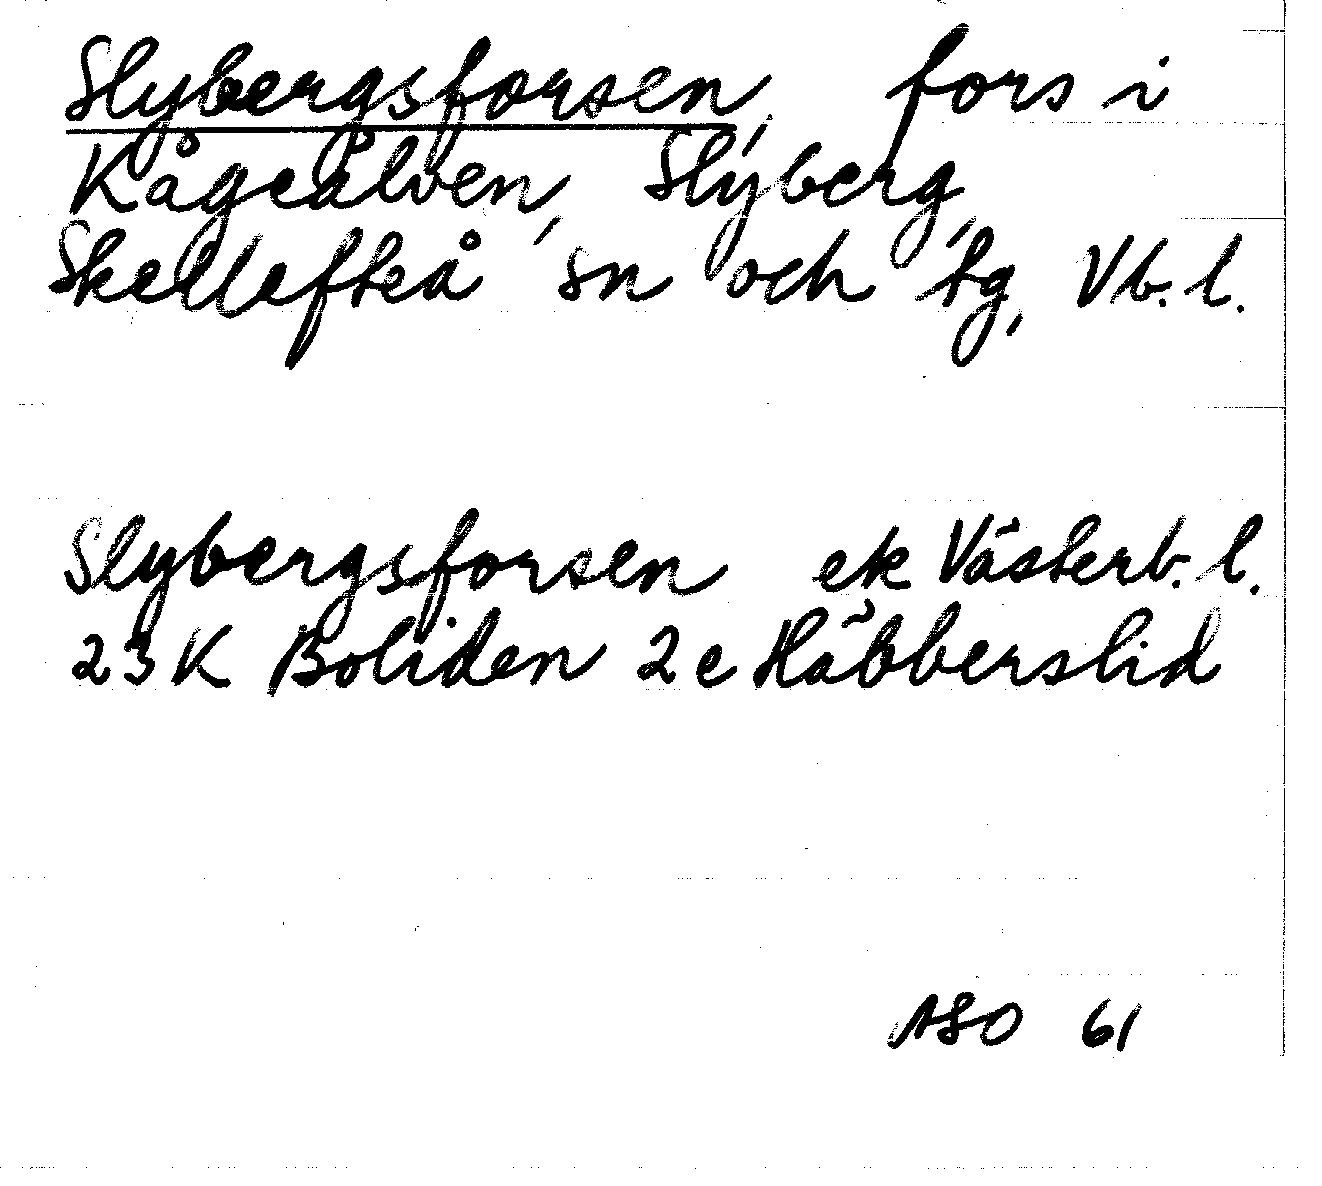 Slybergsforsen, fors i
Kågeälven, Slyberg,
Skellefteå sn och tg, Vb. l.
Slybergsforsen ek Västerb. l.
23 K Boliden 2 e Häbberslid
ASO 61